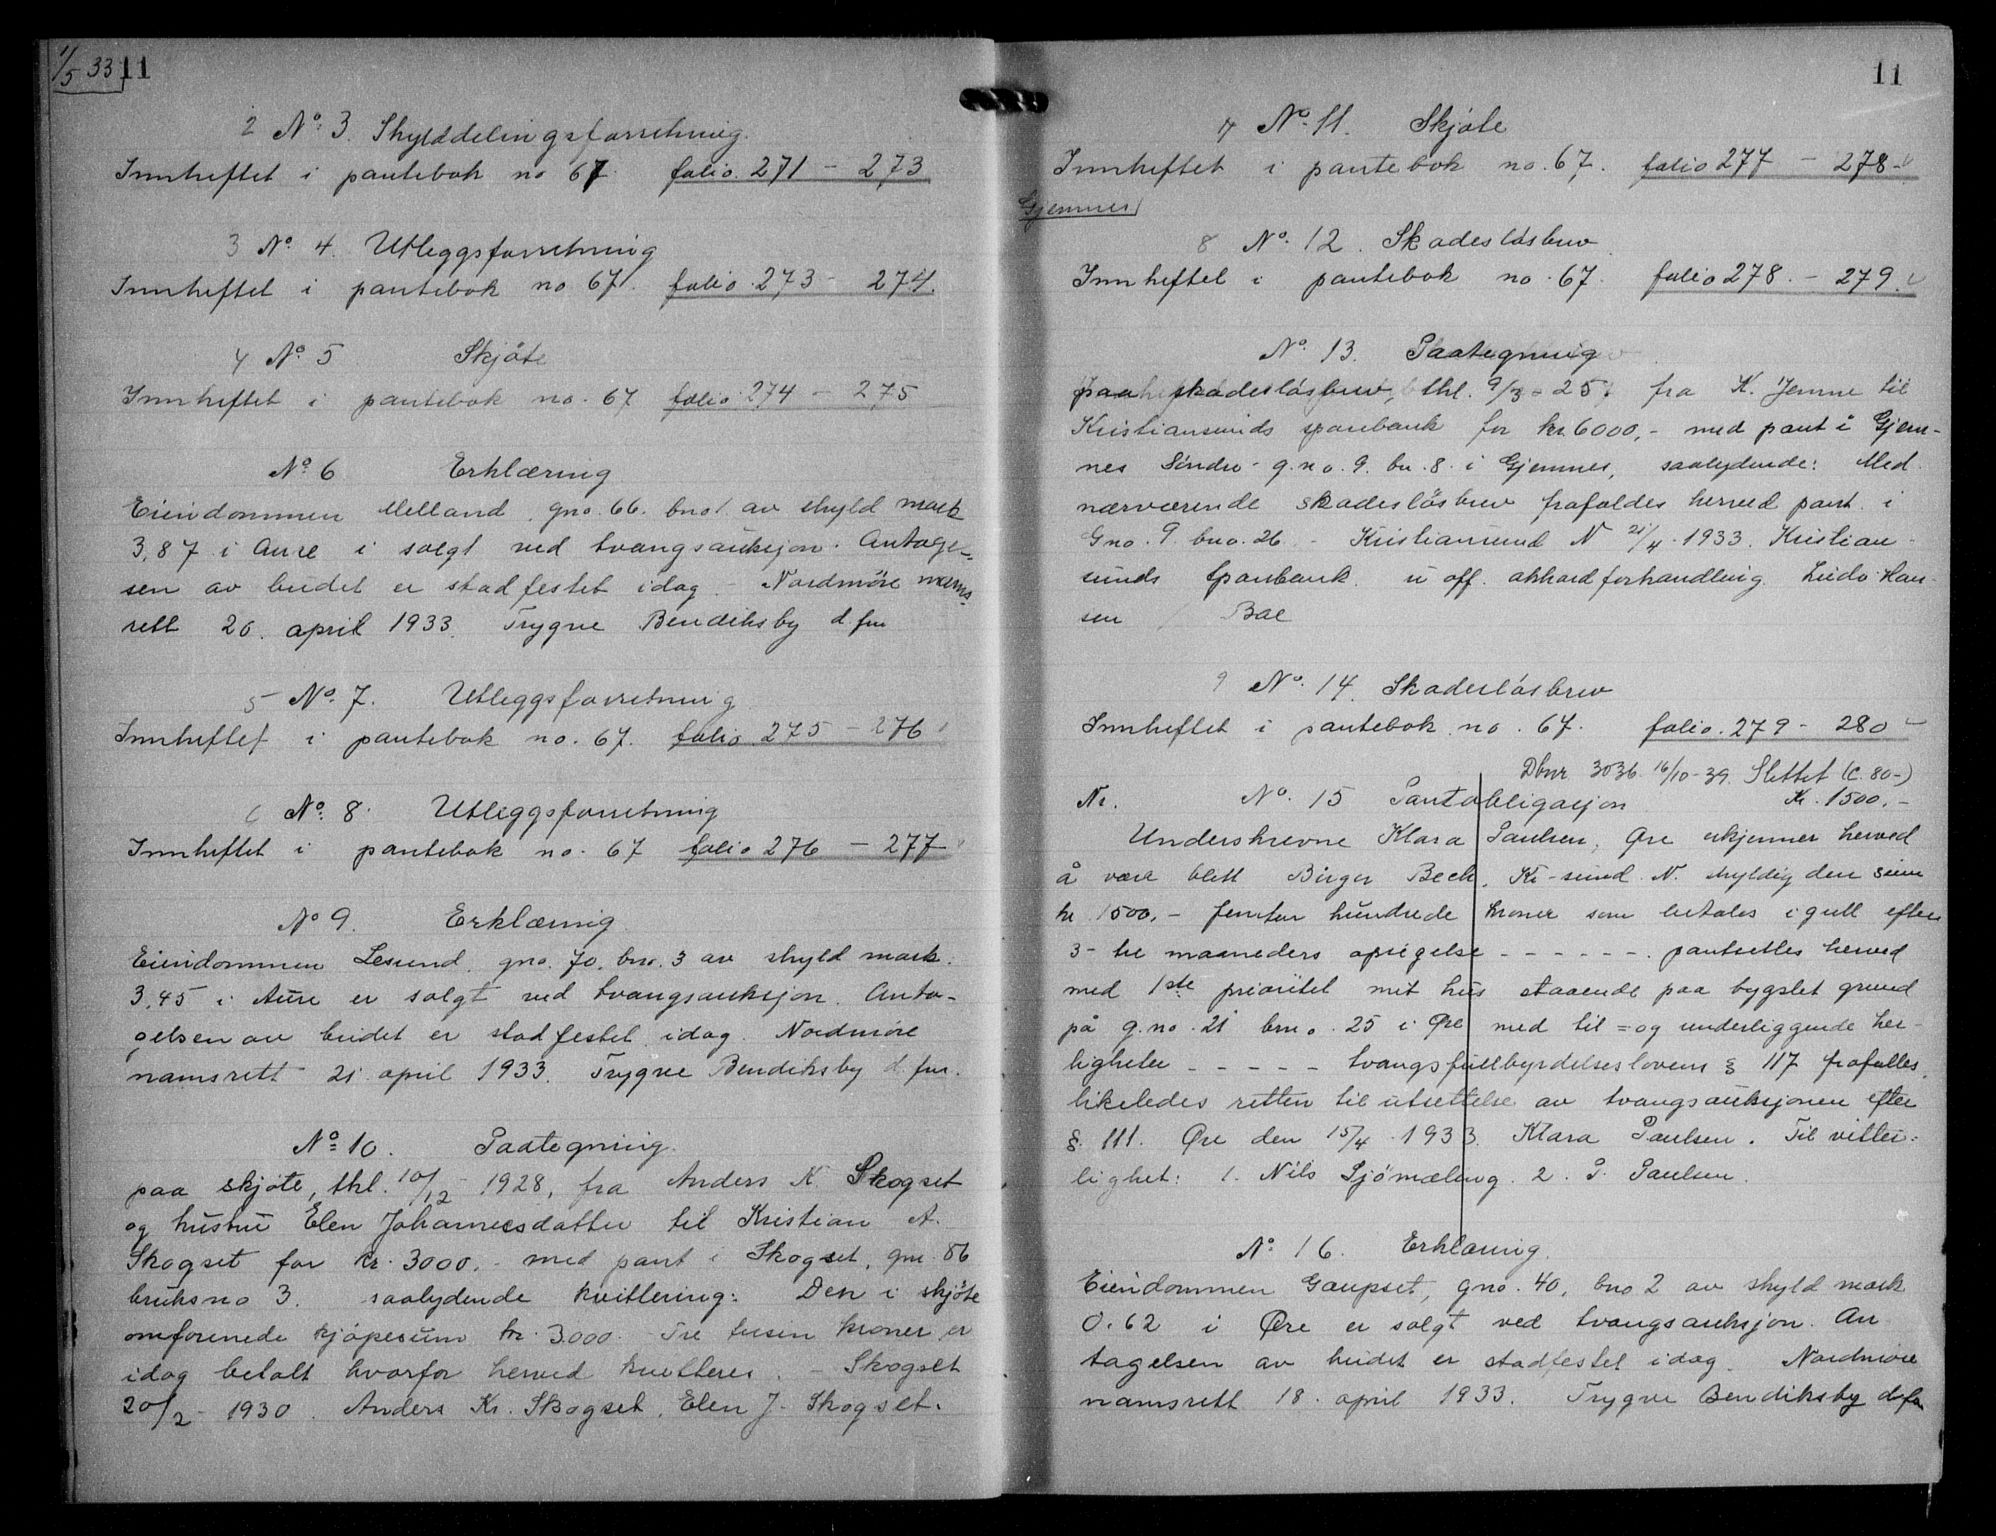 1/5 33 11
2 No. 3. Skylddelingsforretning.
Innheftet i pantebok no 67. folio. 271 - 273
3 No. 4. Utleggsforretning
Innheftet i pantebok no 67. folio. 273 - 274.
4 No. 5 Skjøte
Innheftet i pantebok no. 67 folio 274 - 275
No. 6 Erklæring
Eiendommen Melland, gno. 66. bno 1. av skyld mark
3,87 i Aure i solgt ved tvangsauksjon. Antagel-
sen av budet er stadfestet idag - Nordmøre nams-
rett 20. april 1933. Trygve Bendiksby d. fm
5 No. 7. Utleggsforretning
Innheftet i pantebok no. 67. folio 275 - 276
6 No. 8. Utleggsforretning
Innheftet i pantebok no. 67 folio 276 - 277
No 9. Erklæring
Eiendommen Lesund, gno. 70, bno. 3 av skyld mark.
3,45 i Aure er solgt ved tvangsauksjon. Anta-
gelsen av budet er stadfestet idag. Nordmøre
namsrett 21 april 1933. Trygve Bendiksby d. fm.
No. 10. Paategning.
paa skjøte, thl. 10/12 1928, fra Anders K. Skogset
og hustru Elen Johannesdatter til Kristian A.
Skogset for kr. 3000.- med pant i Skogset, gno. 86
bruksno 3. saalydende kvittering: Den i skjøte
omforenede kjøpesum kr. 3000.- Tre tusen kroner er
idag betalt hvorfor herved kvitteres. - Skogset
20/2 - 1930. Anders Kr. Skogset, Elen J. Skogset.
11
7 No. 11. Skjøte
Innheftet i pantebok no. 67. folio 277 - 278
Gjemnes
8 No. 12. Skadesløsbrev
Innheftet i pantebok no. 67. folio 278. - 279.
No. 13. Paategning
paa skadesløsbrev, thl. 9/3 - 25 fra K. Jenne til
Kristiansunds sparebank for kr. 6000,- med pant i Gjem-
nes Söndre - g.no. 9. bn. 8. i Gjemnes, saalydende: Med
nærværende skadesløsbrev frafaldes herved pant i
Gno. 9. bno. 26. - Kristiansund N 21/4 1933. Kristian-
sunds Sparebank. u off. akkordforhandling Ludv. Han-
sen / Bae
9 No. 14. Skadesløsbrev
Innheftet i pantebok no. 67. folio. 279 - 280
Dbnr 3036 16/10-39. Slettet (C. 80-)
Nr. No. 15 Pantobligasjon Kr. 1500,-
Underskrevne Klara Paulsen, Øre erkjenner herved
å være blitt Birger Bech, Kr-sund N. skyldig den sum
kr 1500,- femten hundrede kroner som betales i gull efter
3- tre maaneders opsigelse - - - - - -. pantsettes herved
med 1ste prioritet mit hus staaende paa bygslet grund
på g.no. 21 brno. 25 i Øre med til = og underliggende her-
ligheter - - - - - tvangsfullbyrdelseslovens § 117 frafalles,
likeledes retten til utsettelse av tvangsauksjonen efter
§. 111. Øre den 15/4 1933. Klara Paulsen. Til vitter-
lighet: 1. Nils Sjömæling. 2. P. Paulsen.
No. 16. Erklæring.
Eiendommen Gaupset, gno. 40, bno 2 av skyld mark
0.62 i Øre er solgt ved tvangsauksjon. An-
tagelsen av budet er stadfestet idag. Nordmøre
namsrett 18. april 1933. Trygve Bendiksby d. fm